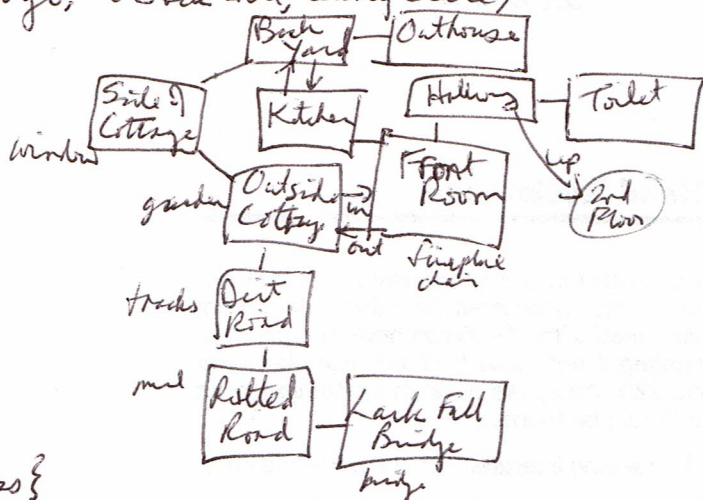 Back
Yard
Outhouse
Side of
Cottage
window
Kitchen
Hallway
Toilet
up
2nd
Floor
garden
Outside
Cottage
in
out
Front
Room
fireplace
chair
tracks
Dirt
Road
mud
Rutted
Road
Lark Fall
Bridge
bridge